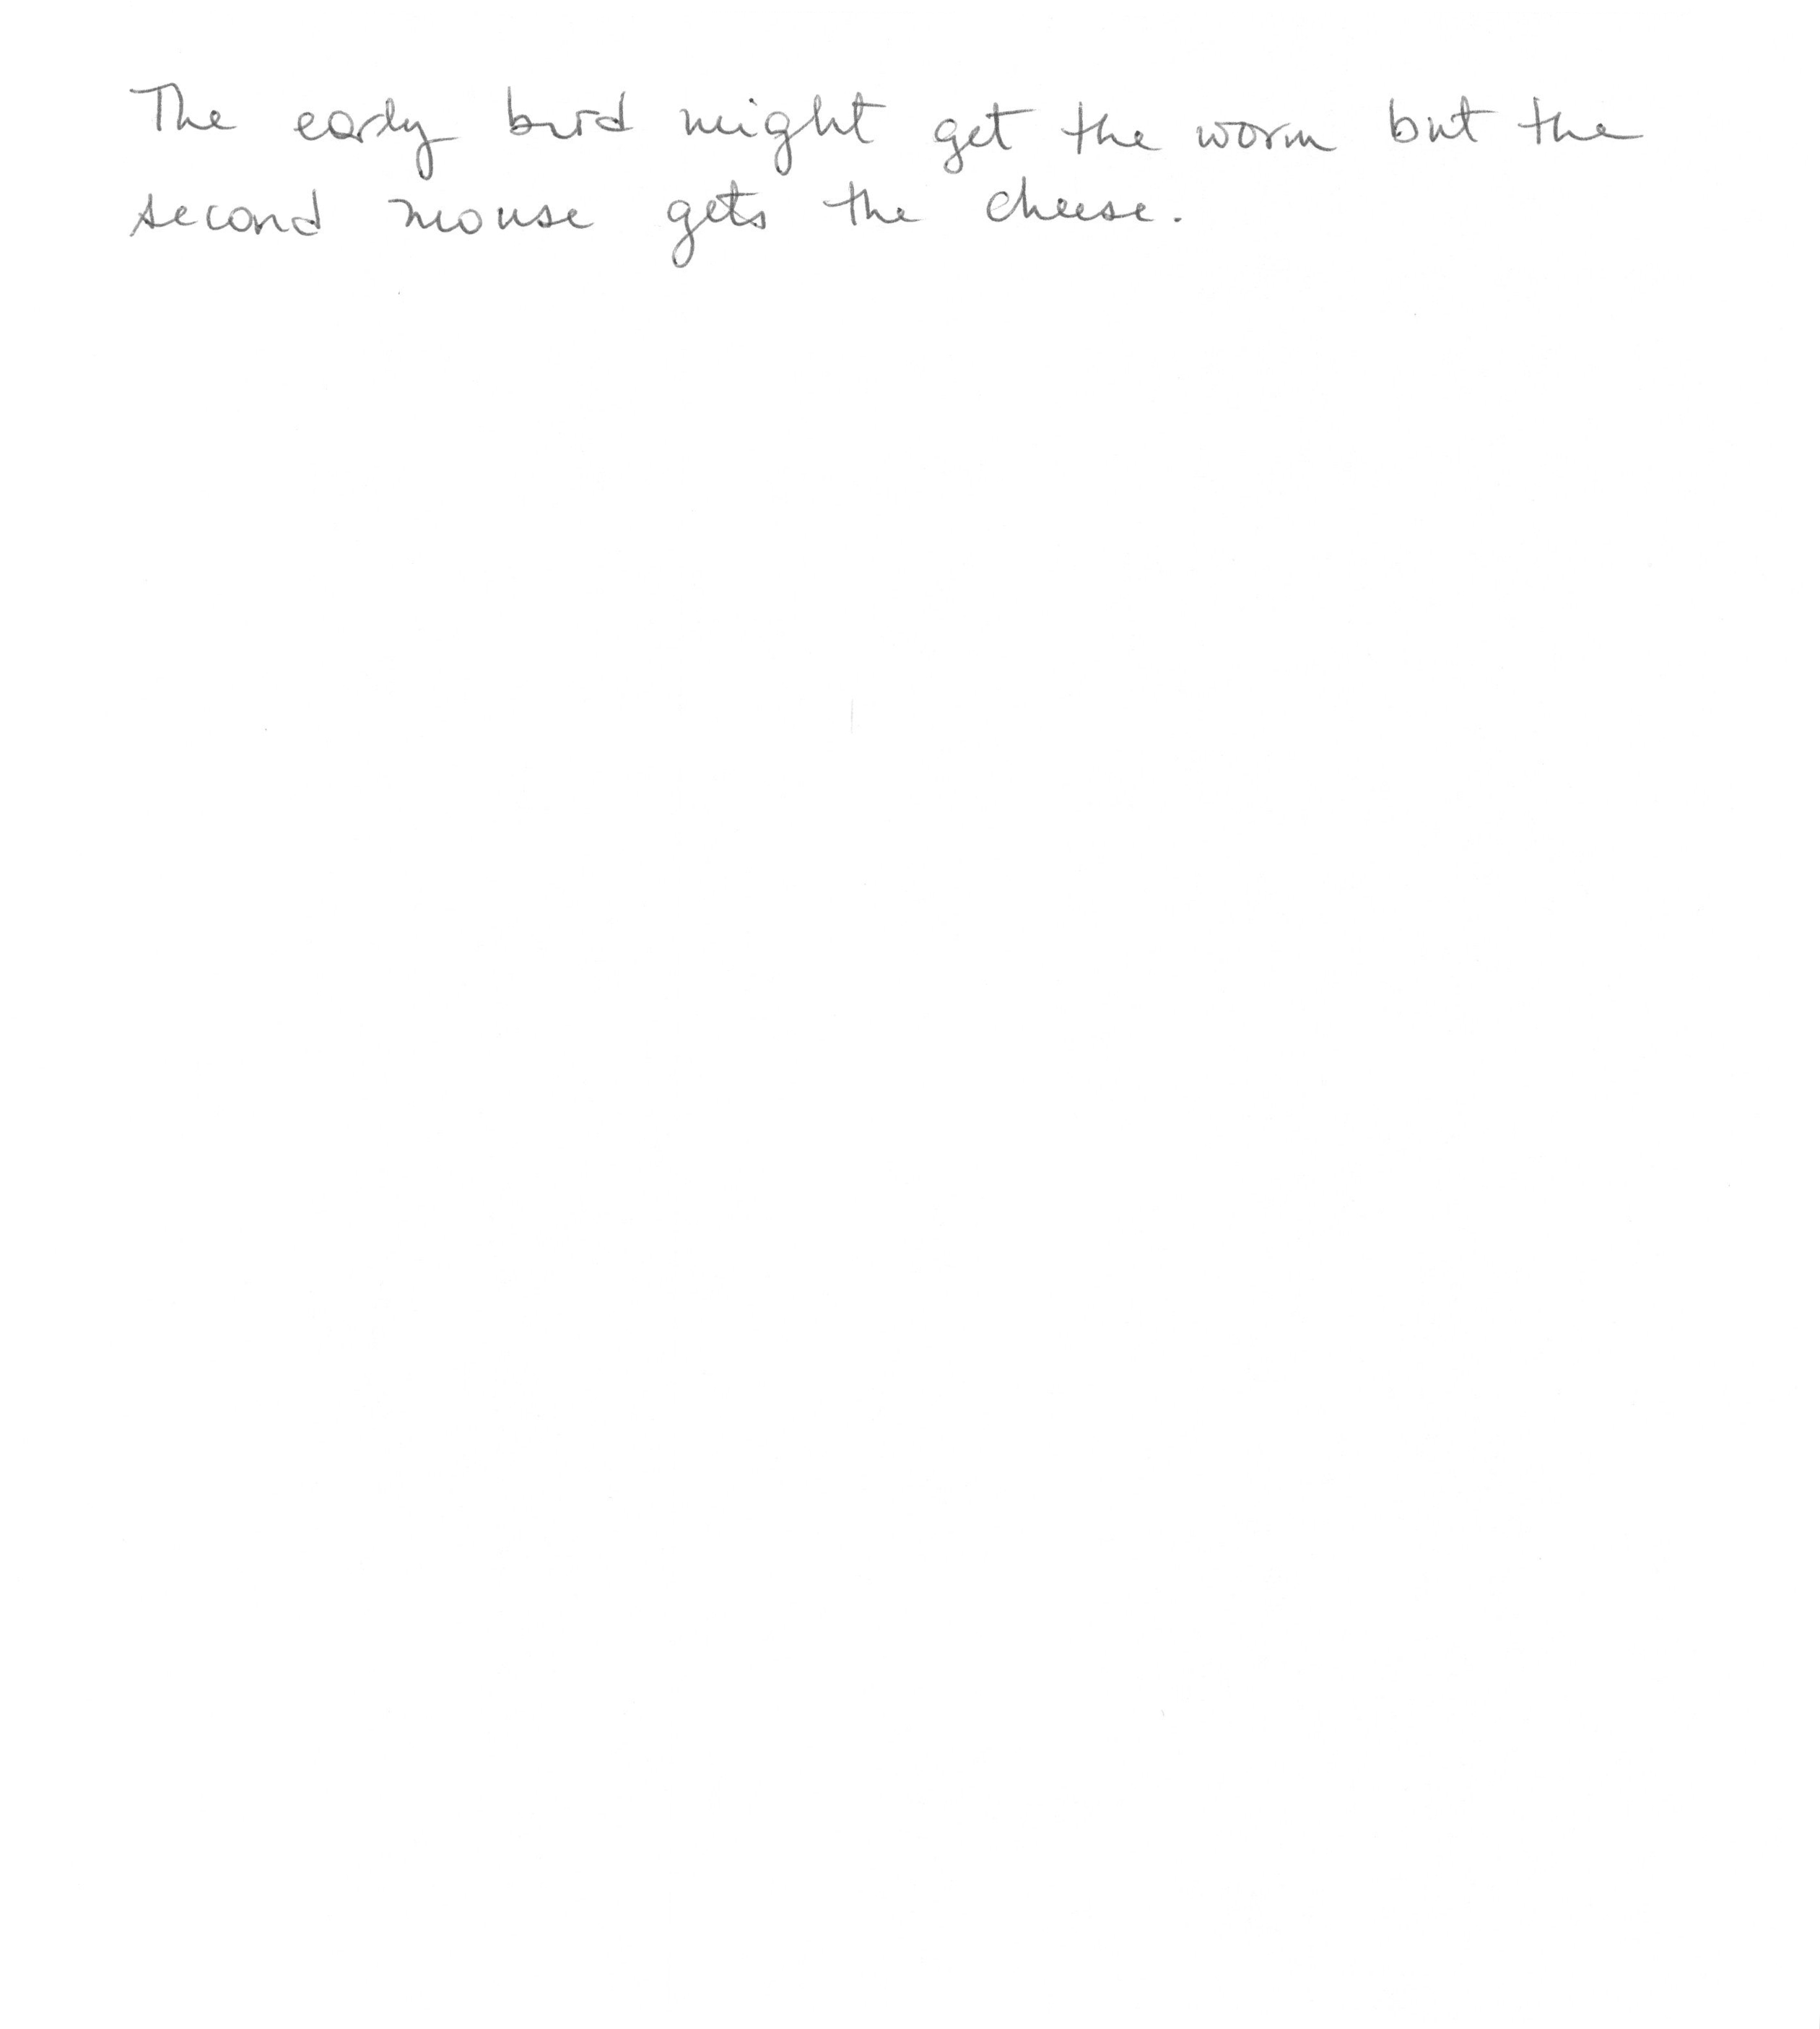 The early bird might get the worm but the
second mouse gets the cheese.